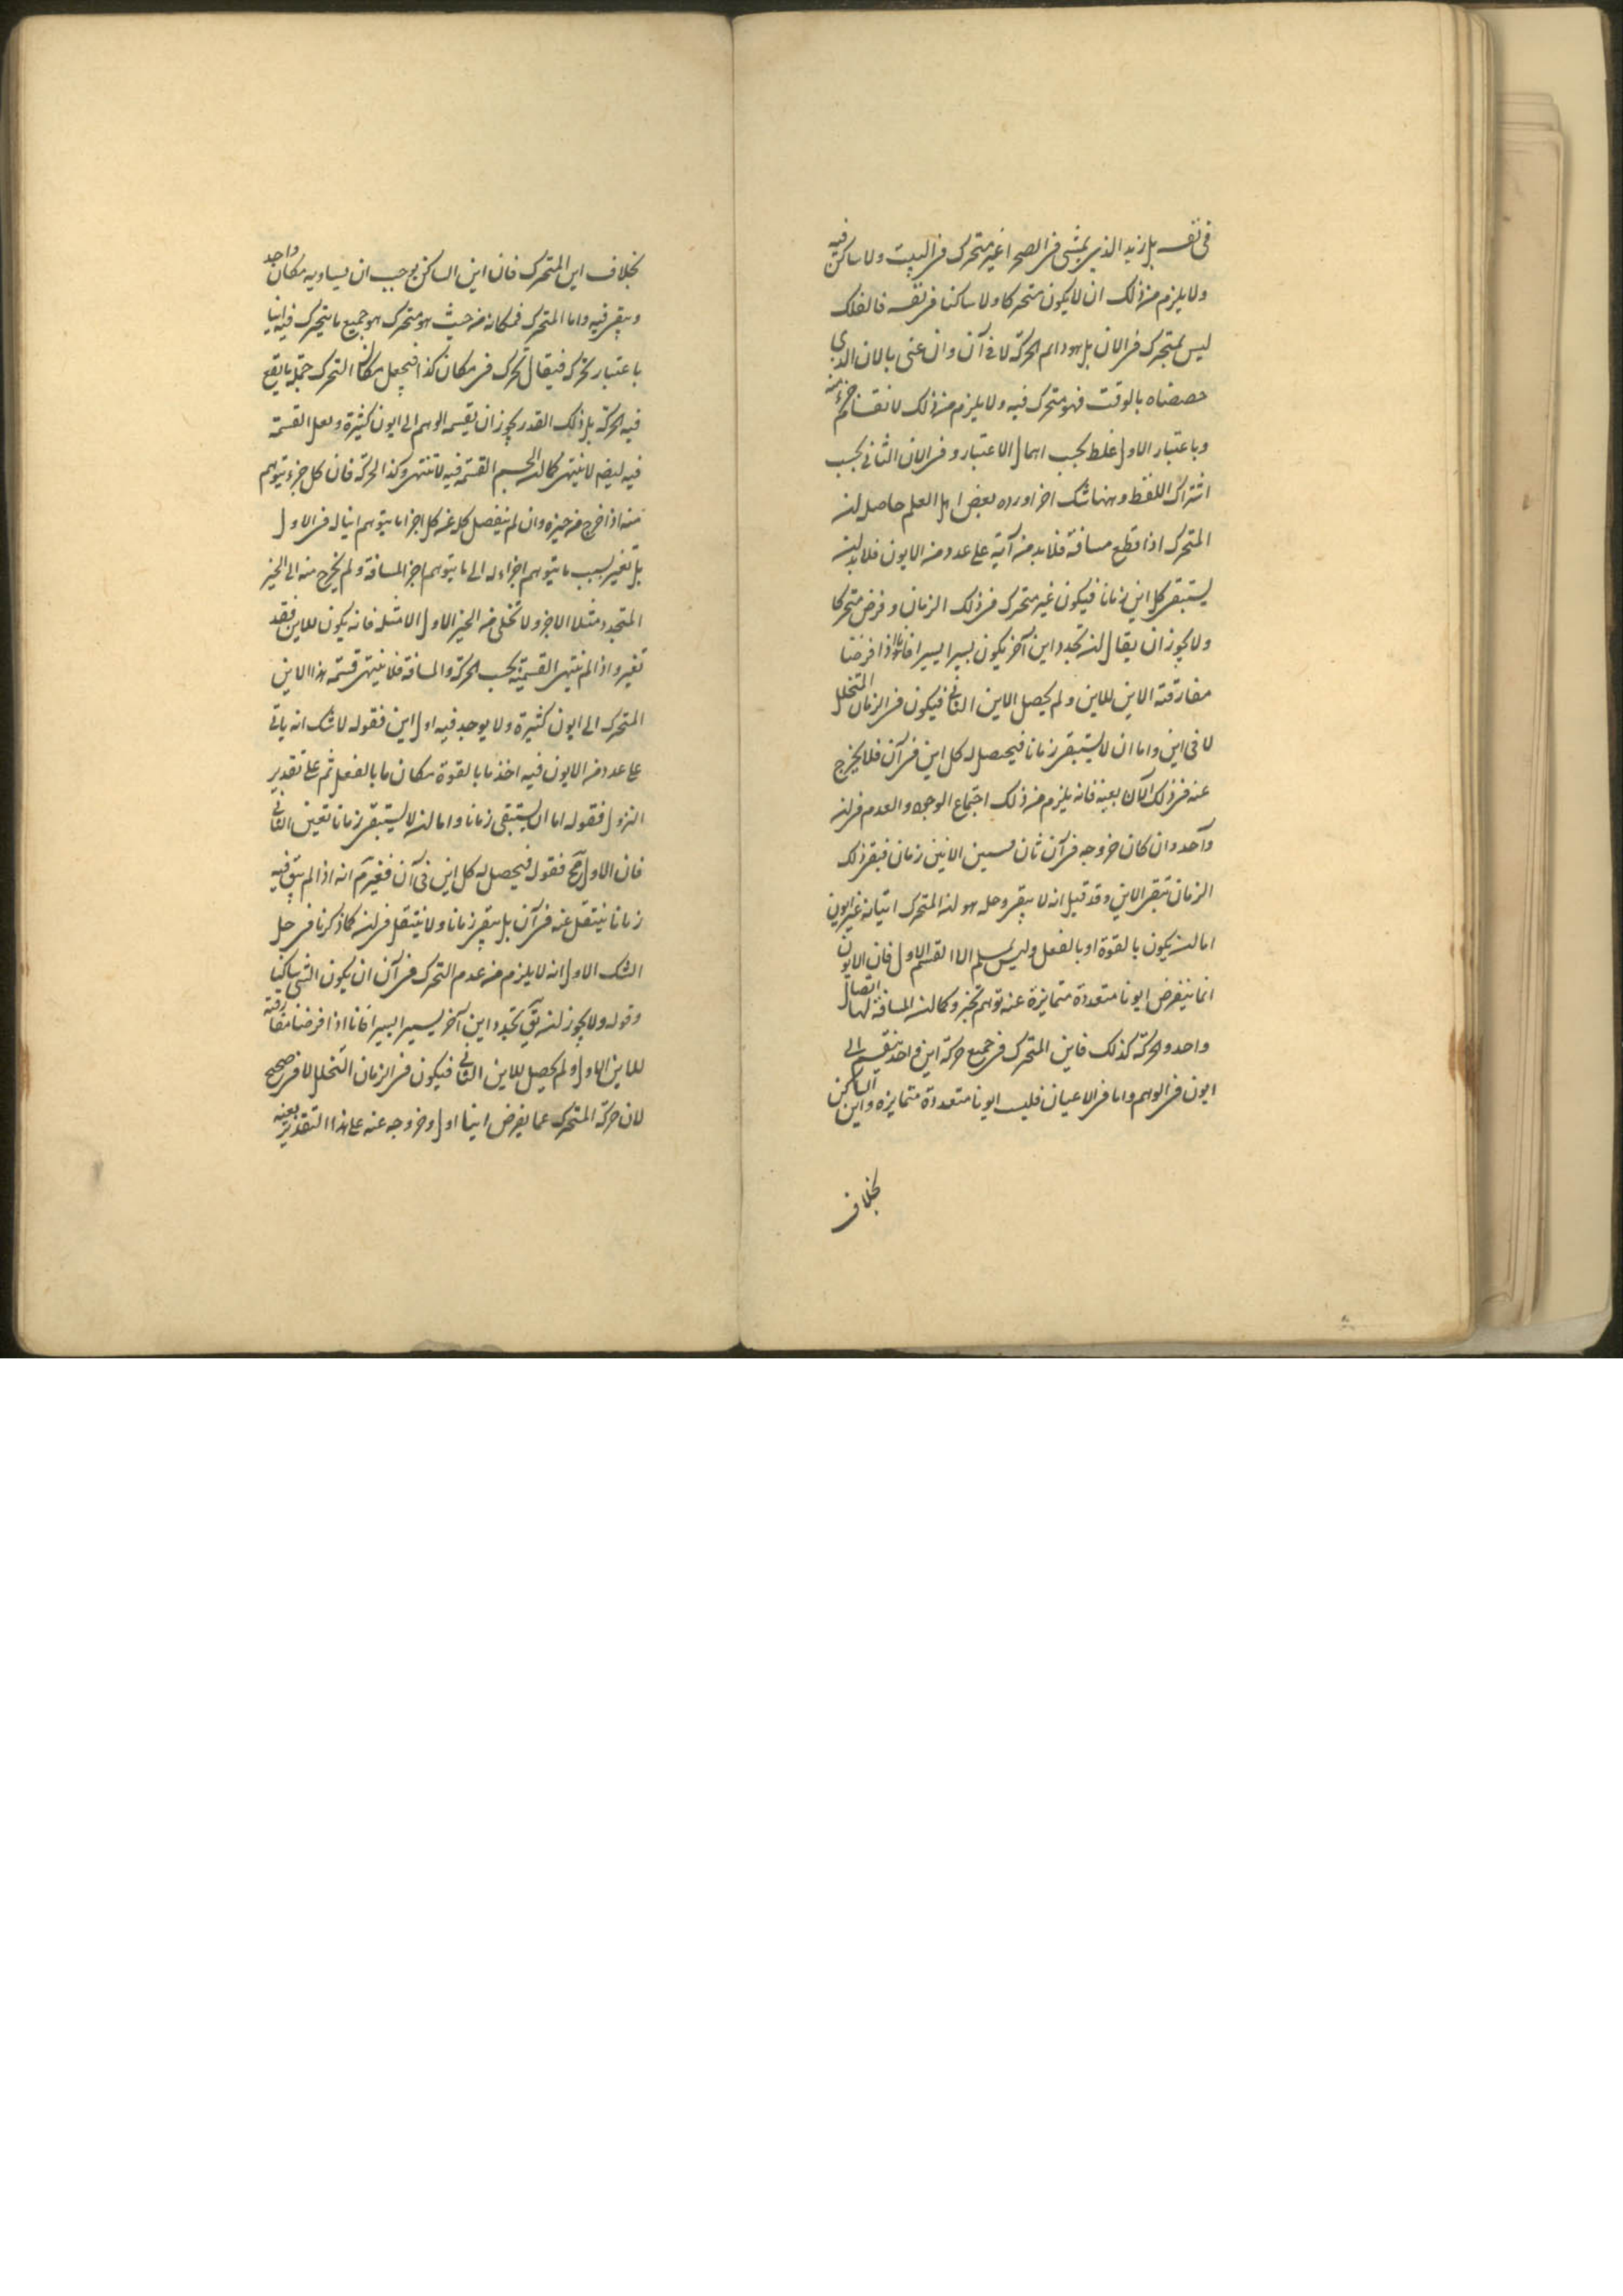 فى نفسه بل زيد الذى يمشى فى الصحرا غير متحرك فى البيت ولا ساكن فيه
ولا يلزم من ذلك ان لا يكون متحركا ولا ساكنا فى نفسه فالفلك
ليس بمتحرك فى الان بل هو دائم الحركة لا فى آن وان عنى بالان الذى
خصصناه بالوقت فهو متحرك فيه ولا يلزم من ذلك لا نقسا جزء منه
وباعتبار الاول غلط بحسب اهمال الاعتبار وفى الان الثانى بحسب
اشتراك اللفظ وههنا شك اخر اورده بعض اهل العلم حاصله ان
المتحرك اذا قطع مسافة فلابد من آتيه على عدد من الايون فلابد ان
يستبقى كل اين زمانا فيكون غير متحرك فى ذلك الزمان وفرض متحركا
ولا يجوز ان يقال ان تجدد اين آخر يكون يسيرا يسيرا فانا اذا فرضنا
مفارقته الاين للاين ولم يحصل الاين الثانى فيكون فى الزمان المتخلل
لا فى اين واما ان لا يستبقى زمانا فيحصل له كل اين فى آن فلا يخرج
عنه فى ذلك الآن بعينه فانه يلزم من ذلك اجتماع الوجود والعدم فى ان
واحد وان كان خروجه فى آن ثان فبين الانين زمان فبقى ذلك
الزمان تبقى الاين وقد قيل انه لا يبقى وحله هو ان المتحرك اتيانه غير ايون
اما ان يكون بالقوة او بالفعل وليس يسلم الا القسم الاول فان الايون
انما ينفرض ايونا متعددة متمايزة عند توهم تجزء وكما ان المسافة لها اتصال
واحد والحركة كذلك فاين المتحرك فى جميع حركة اين واحد ينقسم الى
ايون فى الوهم واما فى الاعيان فليس ايونا متعددة متمايزه واين الساكن
بخلاف
بخلاف اين المتحرك فان اين الساكن يوجب ان يساويه مكان واحد
ويبقى فيه واما المتحرك فمكانه من حيث هو متحرك هو جميع ما يتحرك فيه اينا
باعتبار تحرك فيقال تحرك فى مكان كذا فيجعل مكان التحرك جملة ما يقع
فيه الحركة بل ذلك القدر يجوز ان يقسمه الوهم الى ايون كثيرة ولعل القسمة
فيه ايضه لا ينتهى كما ان الجسم القسمة فيه لا تنتهى وكذا الحركة فان كل جزء يتوهم
منه اذا خرج من حيزه وان لم ينفصل كل عن كل اجزا ما يتوهم اينا له فى الاول
بل تغير بسبب ما يتوهم اجزاء له الى ما يتوهم اجزا المسافة ولم يخرج منه الى الحيز
المتجدد مثلا الاجزء ولا تخلى من الحيز الاول الا مثله فانه يكون للاين فقد
تغير واذا لم ينتهى القسمة بحسب الحركة والمسافة فلا ينتهى قسمة هذا الاين
المتحرك الى ايون كثيرة ولا يوجد فيه اول اين فقوله لا شك انه ياتى
على عدد من الايون فيه اخذ ما بالقوة مكان ما بالفعل ثم على تقدير
النزول فقوله اما ان يستبقى زمانا واما ان لا يستبقى زمانا تعين الثانى
فان الاول مح فقوله فيحصل له كل اين فى آن فغير مم انه اذا لم يبق فيه
زمانا ينتقل عنه فى آن بل يبقى زمانا ولا ينتقل فى ان كما ذكرنا فى حل
الشك الاول انه لا يلزم من عدم التحرك فى آن ان يكون الشى ساكنا
وقوله ولا يجوز ان يق تجدد اين آخر يسيرا يسيرا فانا اذا فرضنا مفارقته
للاين الاول ولم يحصل للاين الثانى فيكون فى الزمان المتخلل لا فى صحيح
لان حركة المتحرك عما يفرض اينا اول وخروجه عنه على هذا التقدير بعينه